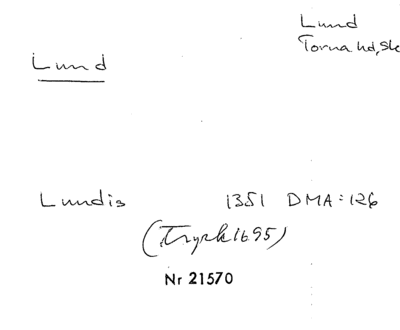 Lund
Torna hd, Sk
Lund
Lundis 1351 DMA:126
(Tryck 1695)
Nr 21570